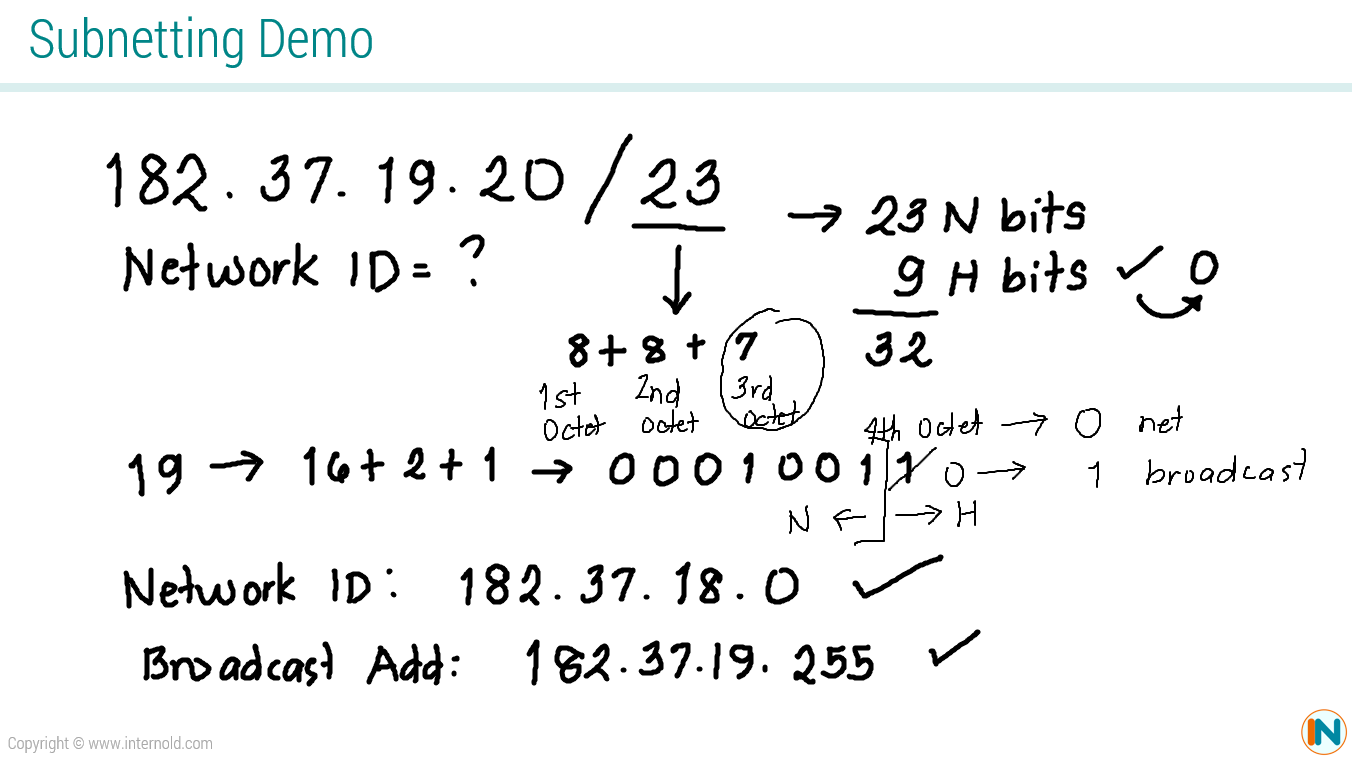 Subnetting Demo
182.37.19.20/23 → 23 N bits
Network ID = ? ↓ 9 H bits ✓ 0
8+8+7 32
1st 2nd 3rd
Octet octet octet 4th Octet → 0 net
19 → 16+2+1 → 00010011 0 → 1 broadcast
N ← → H
Network ID: 182.37.18.0 ✓
Broadcast Add: 182.37.19.255 ✓
Copyright © www.internold.com
IN